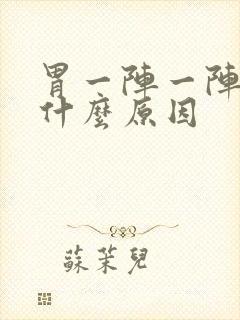 胃一陣一陣
什麼原因
蘇茉兒